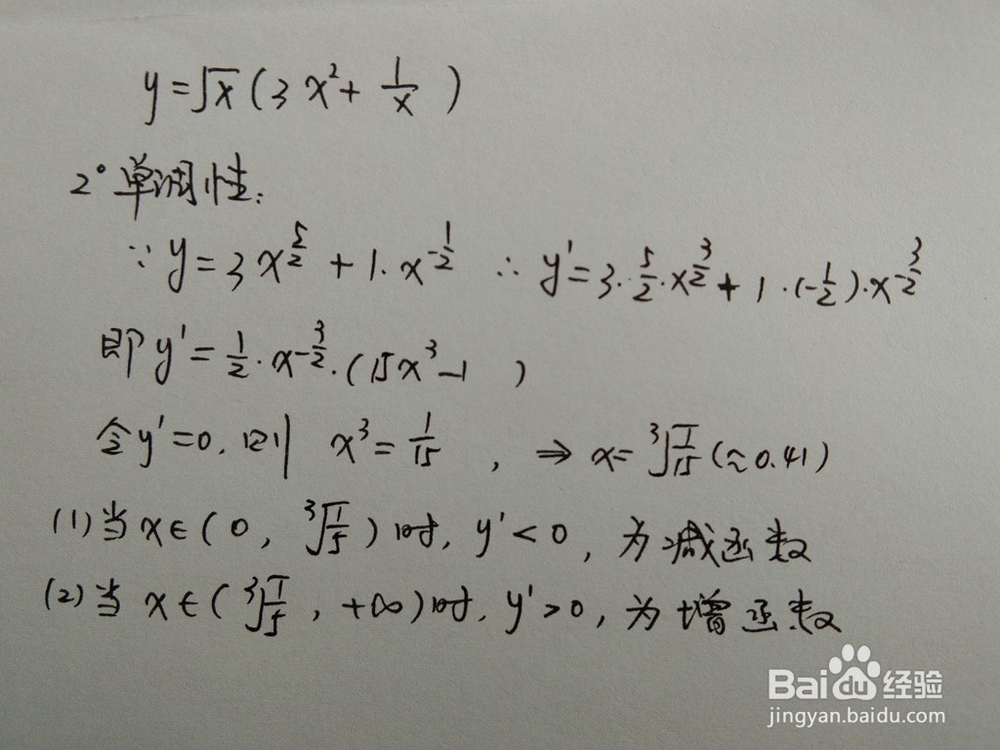 y=√x(3x²+1/x)
2°单调性:
∵y=3x^(5/2)+1·x^(-1/2) ∴y'=3·5/2·x^(3/2)+1·(-1/2)·x^(-3/2)
即y'=1/2·x^(-3/2)·(15x³-1)
令y'=0,则 x³=1/15,⇒x=³√(1/15)(≈0.41)
(1)当x∈(0,³√(1/15))时,y'<0,为减函数
(2)当x∈(³√(1/15),+∞)时,y'>0,为增函数
Baidu经验
jingyan.baidu.com